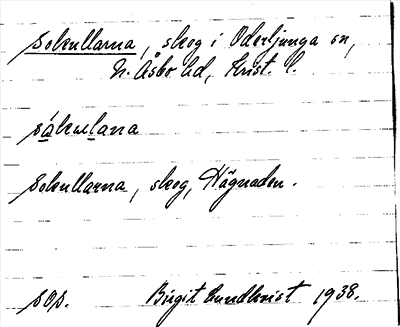 Sokullarna, skog i Oderljunga sn,
N. Åsbo hd, Krist. l.
såkulana
Sokullarna, skog, Hägnaden.
sos.    Birgit Lundkvist 1938.